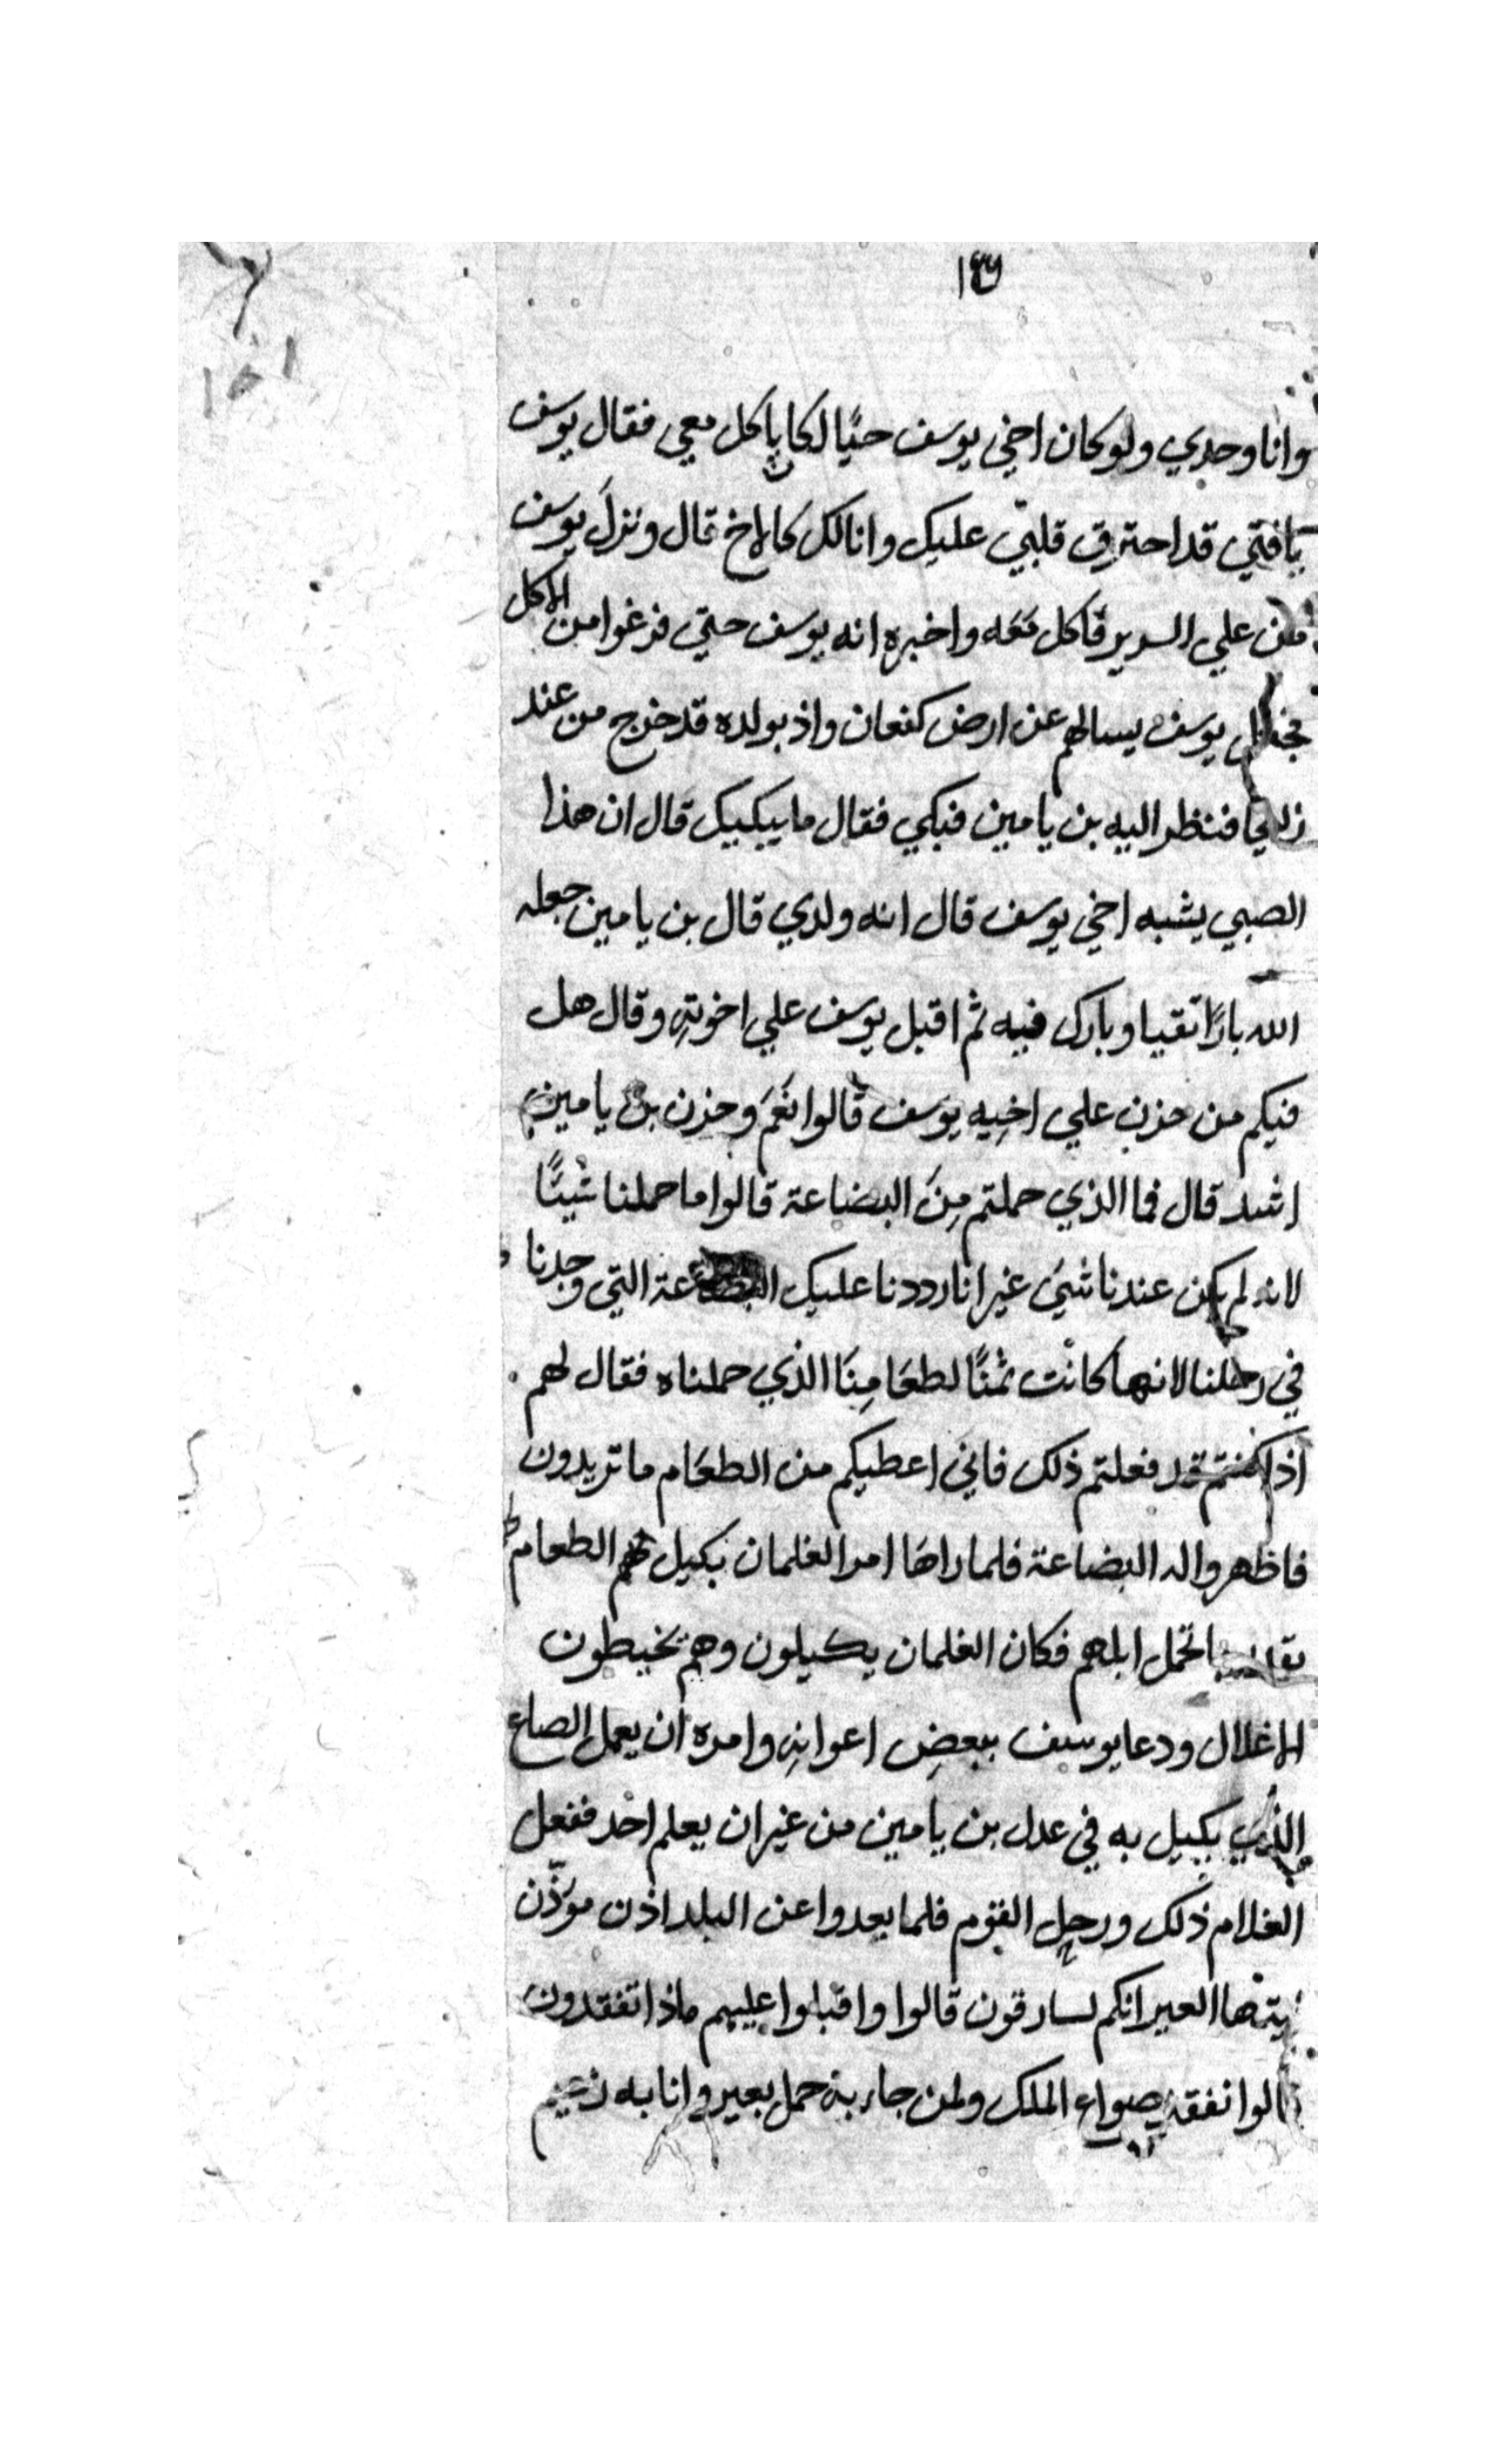 ١٤٦
وانا وحدي ولو كان اخي يوسف حيًا لكان ياكل معي فقال يوسف
يا فتي قد احترق قلبي عليك وانا لك كالاخ قال ونزل يوسف
من علي السرير فاكل معه واخبره انه يوسف حتي فرغوا من الاكل
فجعل يوسف يسالهم عن ارض كنعان واذ بولده قد خرج من عند
زليخا فنظر اليه بن يامين فبكي فقال ما يبكيك قال ان هذا
الصبي يشبه اخي يوسف قال انه ولدي قال بن يامين جعله
الله بارًا تقيا وبارك فيه ثم اقبل يوسف علي اخوتهِ وقال هل
فيكم من حزن علي اخِيه يوَسف قالوا نَعَمَ وحزن بن يامين
اشد قال فما الذي حملتم مِنَ البضاعة قالوا ما حملنا شيئًا
لانه لم يكن عندنا شيء غير انا رددنا عليك البضاعة التي وجدنا
في رحلنا لانها كانت ثمنًا لطعَامِنَا الذي حملناه فقال لهم
اذا كنتم قد فعلتم ذلك فاني اعطيكم من الطعَام ما تريدون
فاظهروا له البضاعة فلما راها امر الغلمان بكيل لهم الطعام
تحمل ابلهم فكان الغلمان يكيلون وهم يخيطون
الاغلال ودعا يوسف ببعضِ اعوانهِ وامره ان يعمل الصاع
الذي يكيل به في عدل بن يامين من غير ان يعلم احد ففعل
الغلام ذلك ورحل القوم فلما بعدوا عن البلد اذن موَذّن
ايتها العير انكم لسارقون قالوا واقبلوا عليهم ماذا تفقدون
قالوا نفقد صواع الملك ولمن جاء به حمل بعير وانا به زعيم